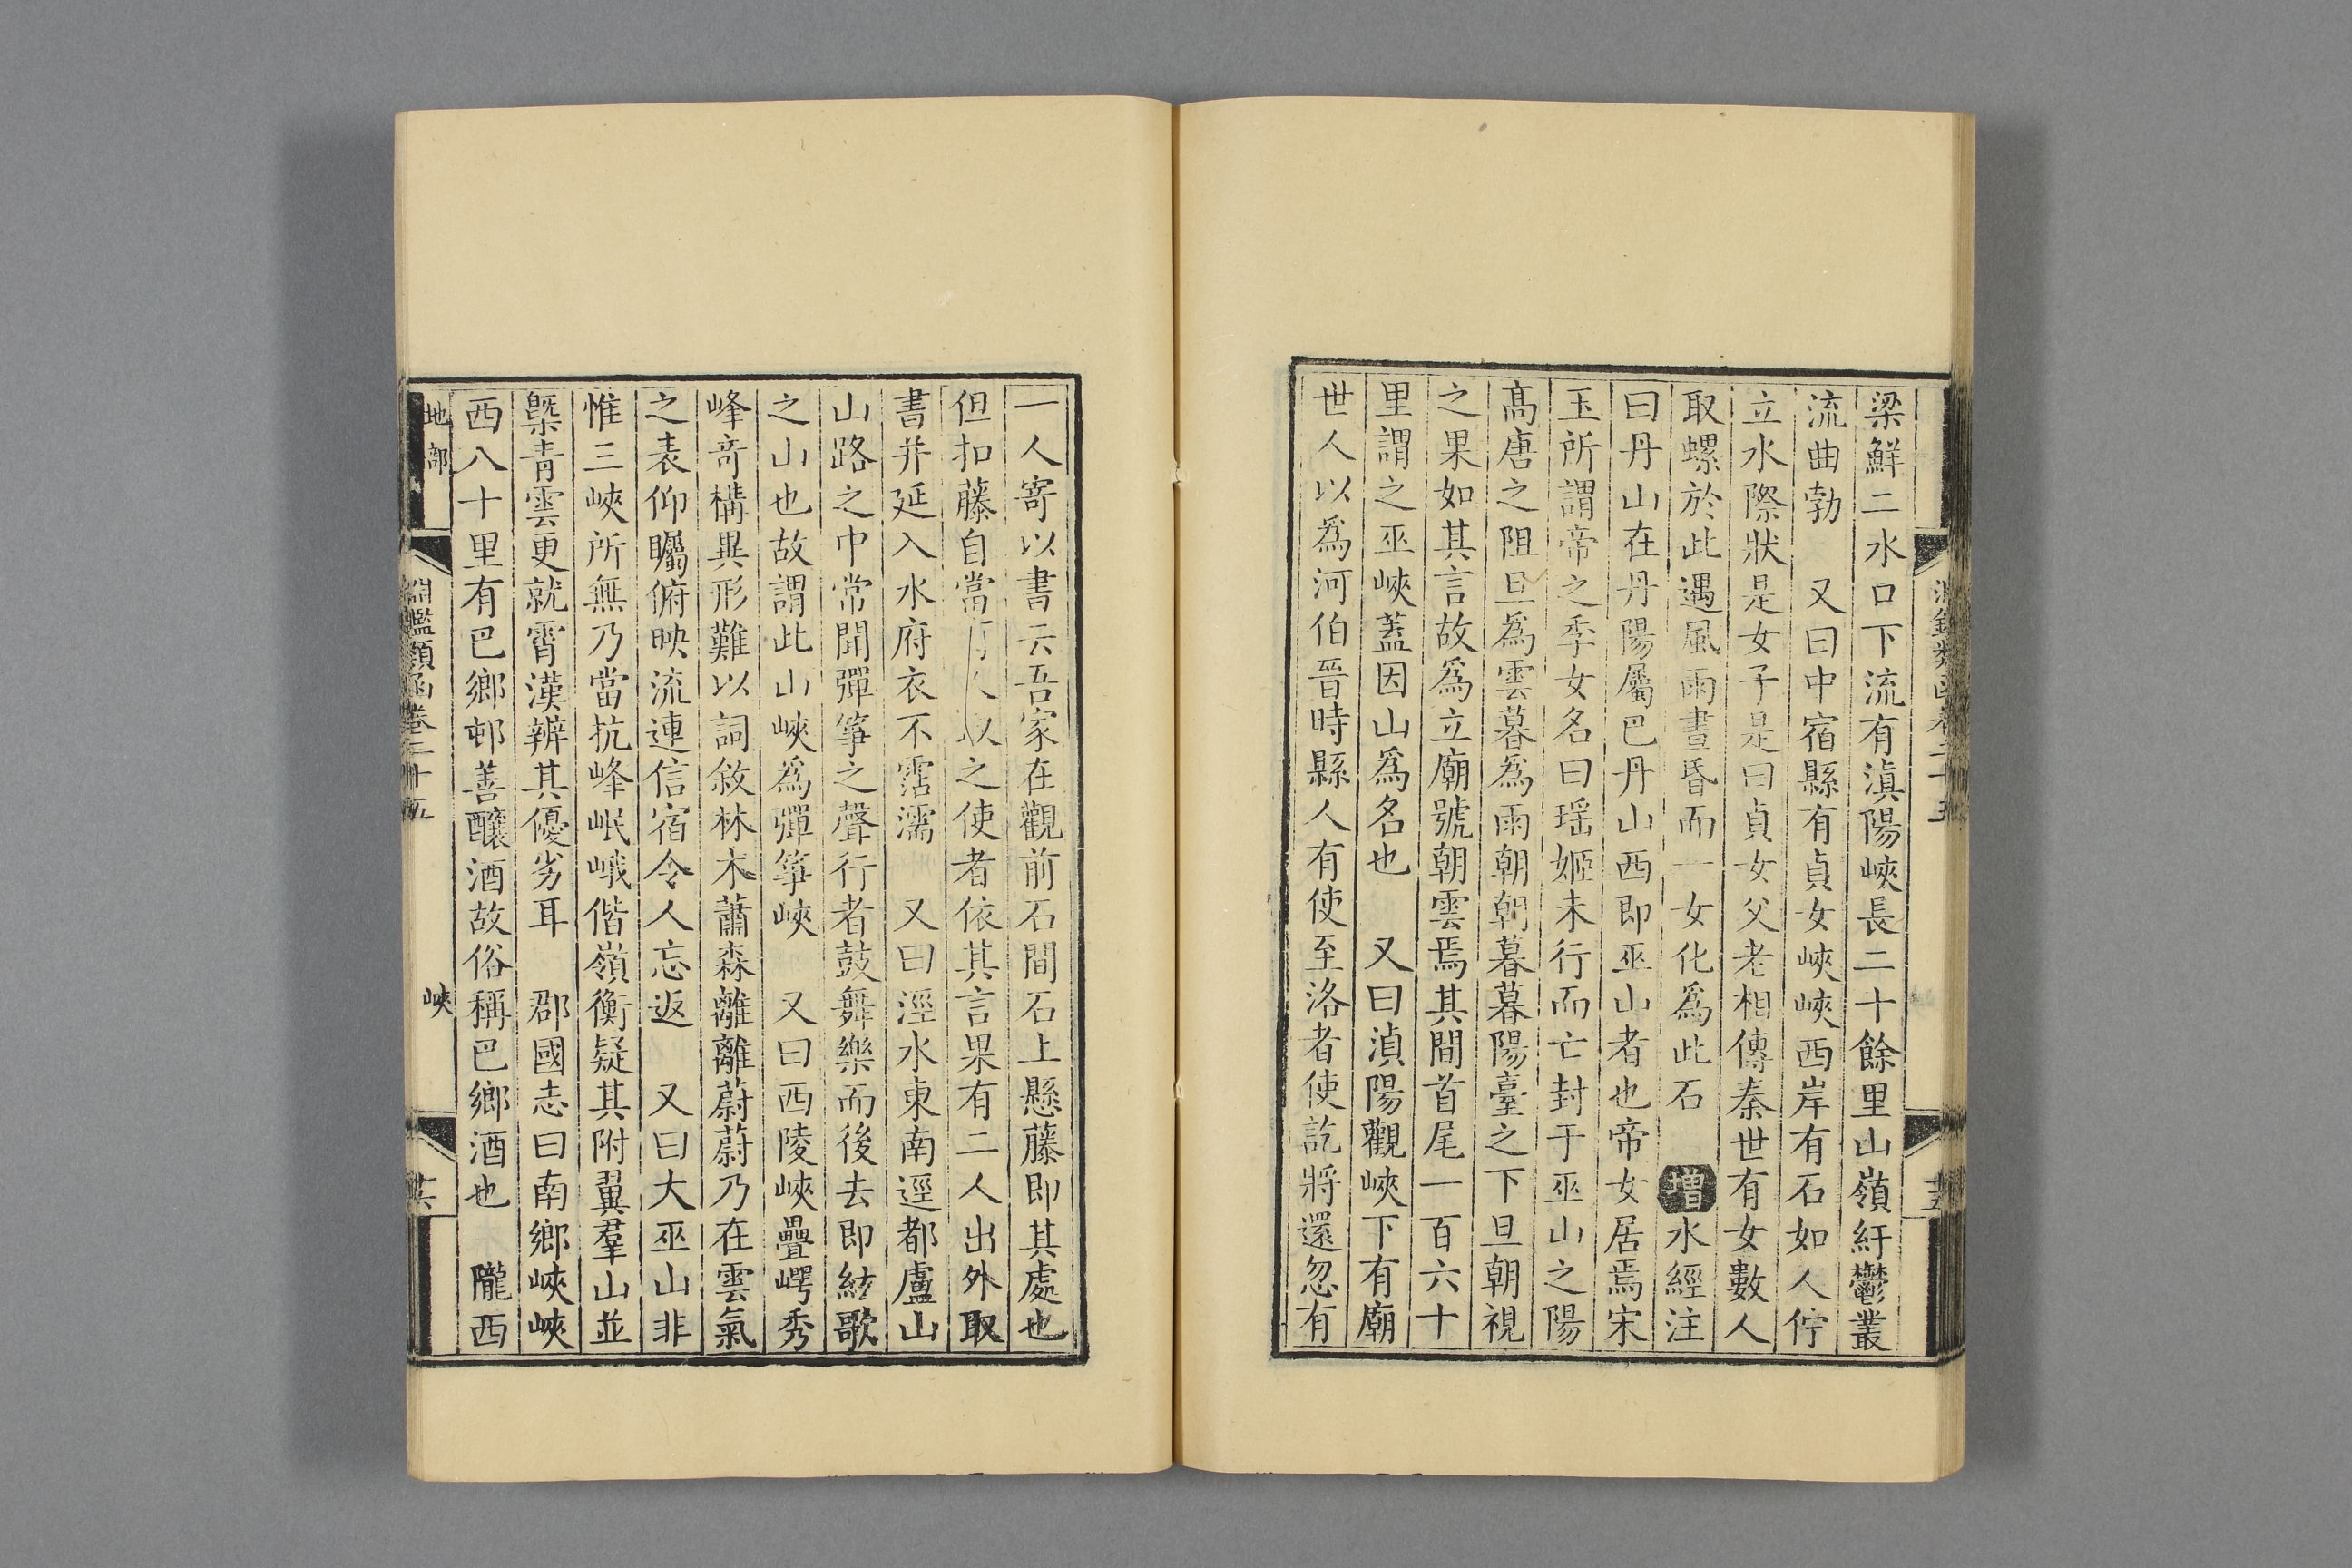 梁鮮二水口下流有滇陽峽長二十餘里山嶺紆鬱叢
流曲勃　又曰中宿縣有貞女峽峽西岸有石如人佇
立水際狀是女子是曰貞女父老相傳秦世有女數人
取螺於此遇風雨晝昏而一女化爲此石　增水經注
曰丹山在丹陽屬巴丹山西即巫山者也帝女居焉宋
玉所謂帝之季女名曰瑶姬未行而亡封于巫山之陽
髙唐之阻旦爲雲暮爲雨朝朝暮暮陽臺之下旦朝視
之果如其言故爲立廟號朝雲焉其間首尾一百六十
里謂之巫峽蓋因山爲名也　又曰湞陽觀峽下有廟
世人以爲河伯晉時縣人有使至洛者使訖將還忽有
一人寄以書云吾家在觀前石間石上懸藤即其處也
但扣藤自當有人取之使者依其言果有二人出外取
書并延入水府衣不霑濡　又曰涇水東南逕都盧山
山路之中常聞彈箏之聲行者鼓舞樂而後去即絃歌
之山也故謂此山峽爲彈箏峽　又曰西陵峽疊崿秀
峰竒構異形難以詞敘林木蕭森離離蔚蔚乃在雲氣
之表仰矚俯映流連信宿令人忘返　又曰大巫山非
惟三峽所無乃當抗峰岷峨偕嶺衡疑其附翼羣山並
槩青雲更就霄漢辨其優劣耳　郡國志曰南鄉峽峽
西八十里有巴鄉邨善釀酒故俗稱巴鄉酒也　隴西
地部
淵鑑類函卷二十五
峽